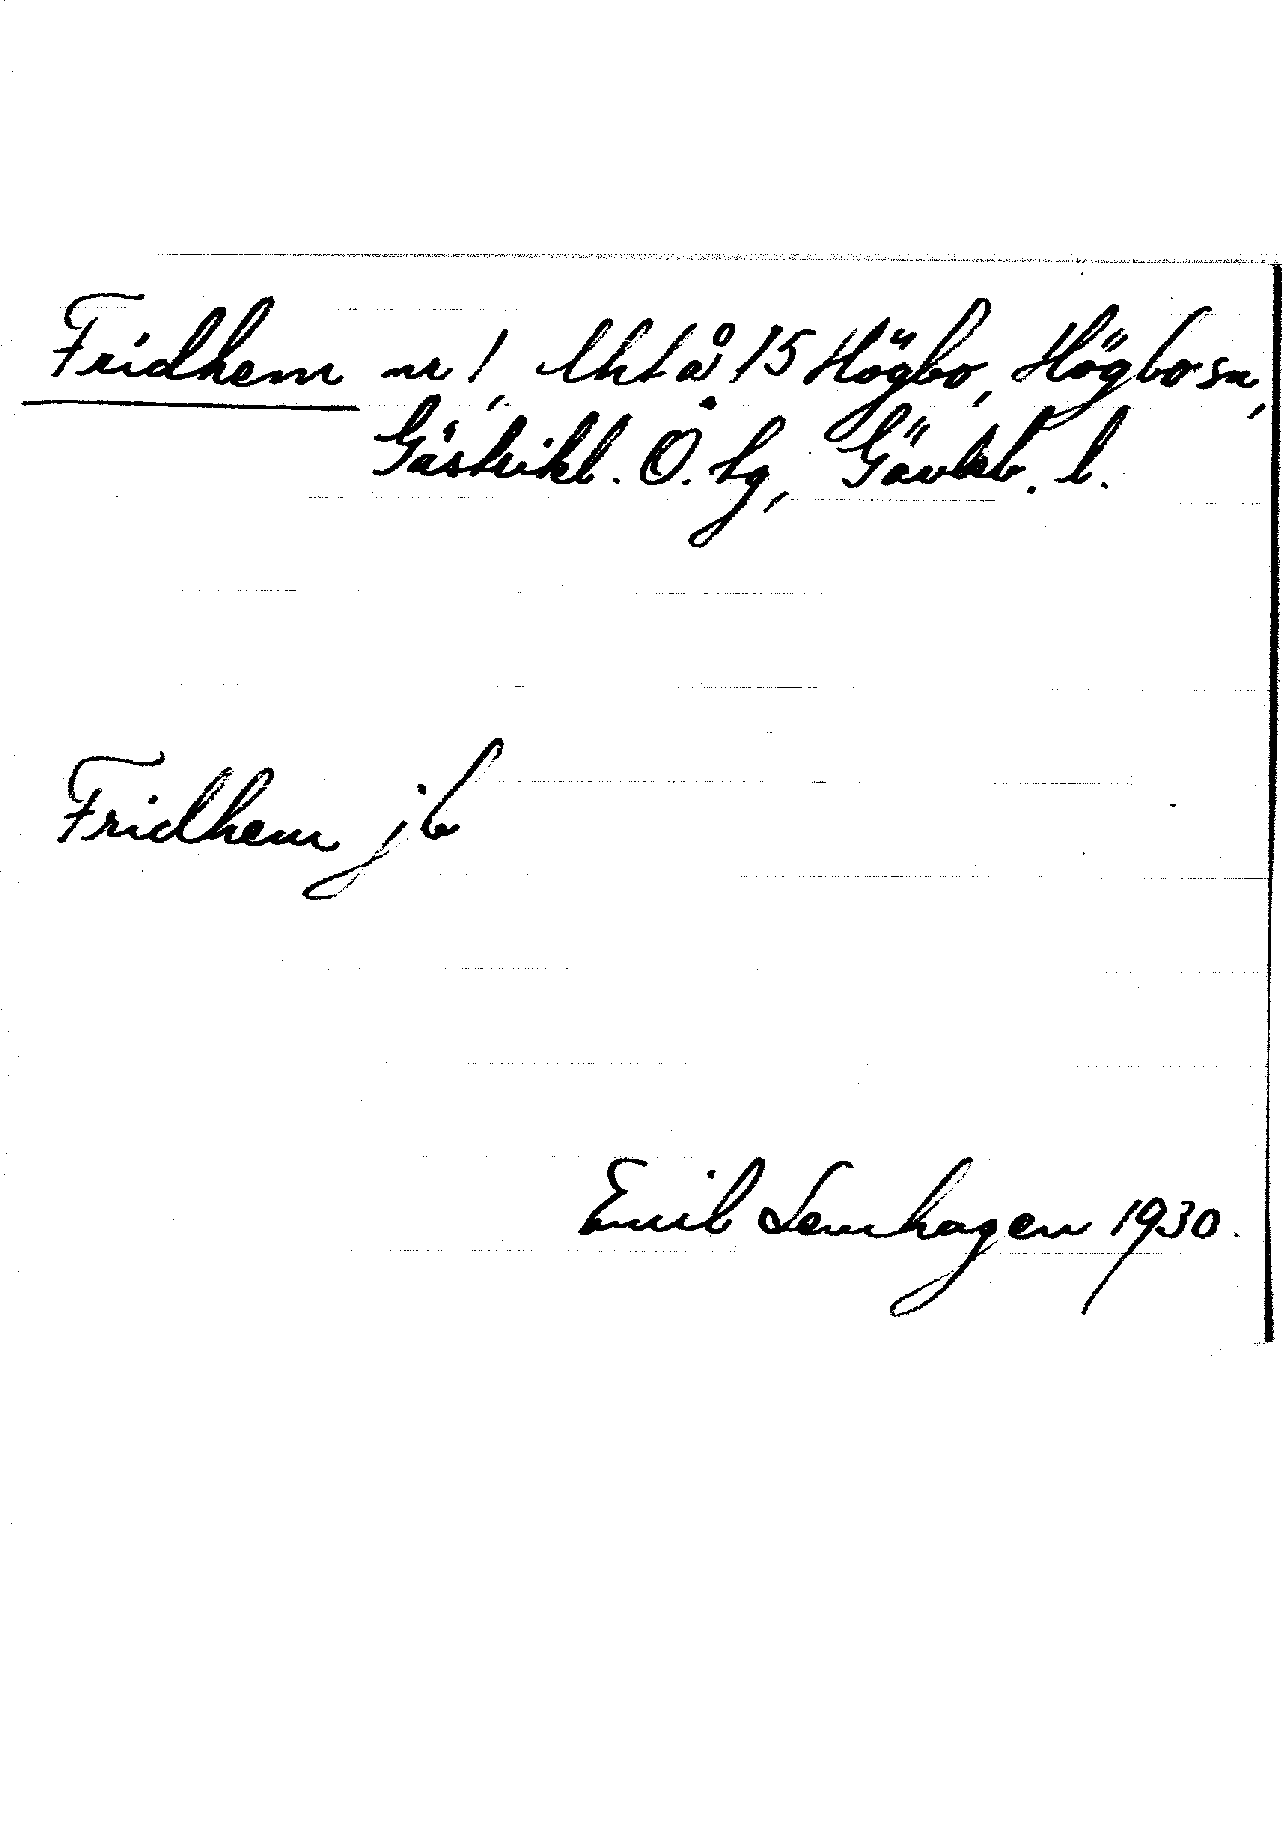 Fridhem nr 1, lht å 15 Högbo, Högbo sn,
Gästrikl. Ö. tg, Gävleb. l.
Fridhem jb
Emil Lenhagen 1930.